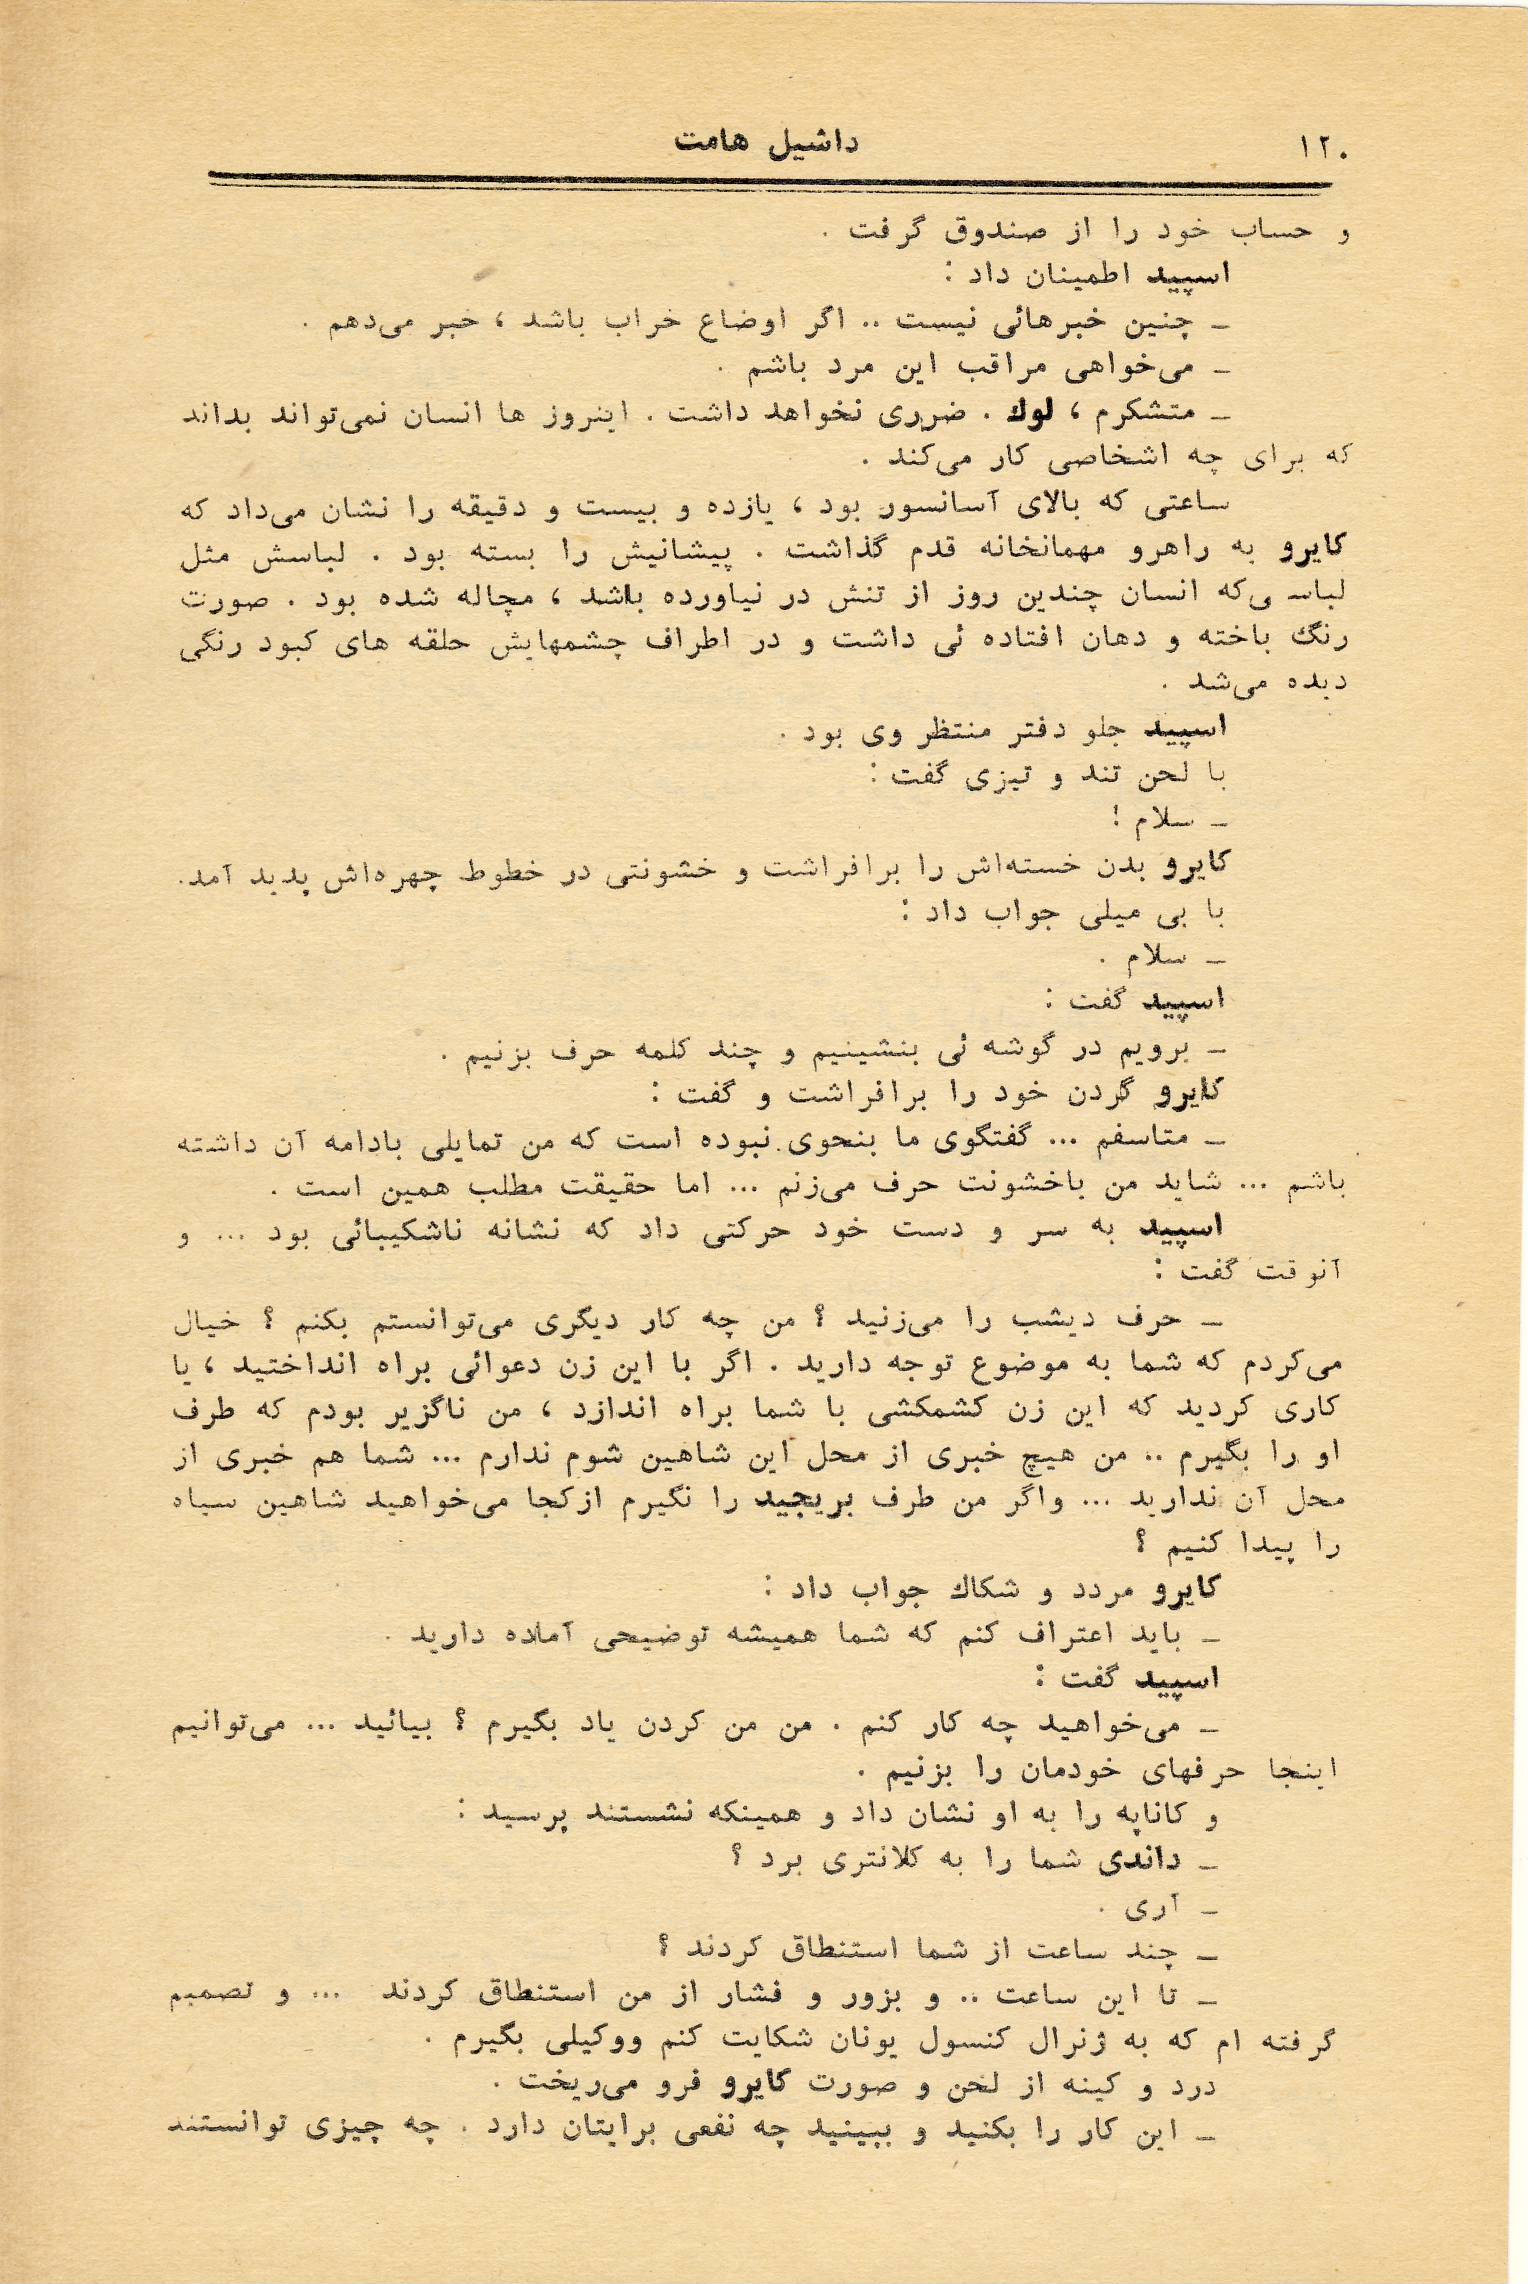 ۱۲۰
داشیل هامت
و حساب خود را از صندوق گرفت .
اسپید اطمینان داد :
ـ چنین خبرهائی نیست .. اگر اوضاع خراب باشد ، خبر می‌دهم .
ـ می‌خواهی مراقب این مرد باشم .
ـ متشکرم ، لوك . ضرری نخواهد داشت . اینروز ها انسان نمی‌تواند بداند
که برای چه اشخاصی کار می‌کند .
ساعتی که بالای آسانسور بود ، یازده و بیست و دقیقه را نشان می‌داد که
کایرو به راهرو مهمانخانه قدم گذاشت . پیشانیش را بسته بود . لباسش مثل
لباسی‌که انسان چندین روز از تنش در نیاورده باشد ، مچاله شده بود . صورت
رنگ باخته و دهان افتاده ئی داشت و در اطراف چشمهایش حلقه های کبود رنگی
دیده می‌شد .
اسپید جلو دفتر منتظر وی بود .
با لحن تند و تیزی گفت :
ـ سلام !
کایرو بدن خسته‌اش را برافراشت و خشونتی در خطوط چهره‌اش پدید آمد.
با بی میلی جواب داد :
ـ سلام .
اسپید گفت :
ـ برویم در گوشه ئی بنشینیم و چند کلمه حرف بزنیم .
کایرو گردن خود را برافراشت و گفت :
ـ متاسفم ... گفتگوی ما بنحوی نبوده است که من تمایلی بادامه آن داشته
باشم ... شاید من باخشونت حرف می‌زنم ... اما حقیقت مطلب همین است .
اسپید به سر و دست خود حرکتی داد که نشانه ناشکیبائی بود ... و
آنوقت گفت :
ـ حرف دیشب را می‌زنید ؟ من چه کار دیگری می‌توانستم بکنم ؟ خیال
می‌کردم که شما به موضوع توجه دارید . اگر با این زن دعوائی براه انداختید ، یا
کاری کردید که این زن کشمکشی با شما براه اندازد ، من ناگزیر بودم که طرف
او را بگیرم .. من هیچ خبری از محل این شاهین شوم ندارم ... شما هم خبری از
محل آن ندارید ... واگر من طرف بریجید را نگیرم ازکجا می‌خواهید شاهین سیاه
را پیدا کنیم ؟
کایرو مردد و شکاك جواب داد :
ـ باید اعتراف کنم که شما همیشه توضیحی آماده دارید .
اسپید گفت :
ـ می‌خواهید چه کار کنم . من من کردن یاد بگیرم ؟ بیائید ... می‌توانیم
اینجا حرفهای خودمان را بزنیم .
و کاناپه را به او نشان داد و همینکه نشستند پرسید :
ـ داندی شما را به کلانتری برد ؟
ـ آری .
ـ چند ساعت از شما استنطاق کردند ؟
ـ تا این ساعت .. و بزور و فشار از من استنطاق کردند ... و تصمیم
گرفته ام که به ژنرال کنسول یونان شکایت کنم ووکیلی بگیرم .
درد و کینه از لحن و صورت کایرو فرو می‌ریخت .
ـ این کار را بکنید و ببینید چه نفعی برایتان دارد . چه چیزی توانستند